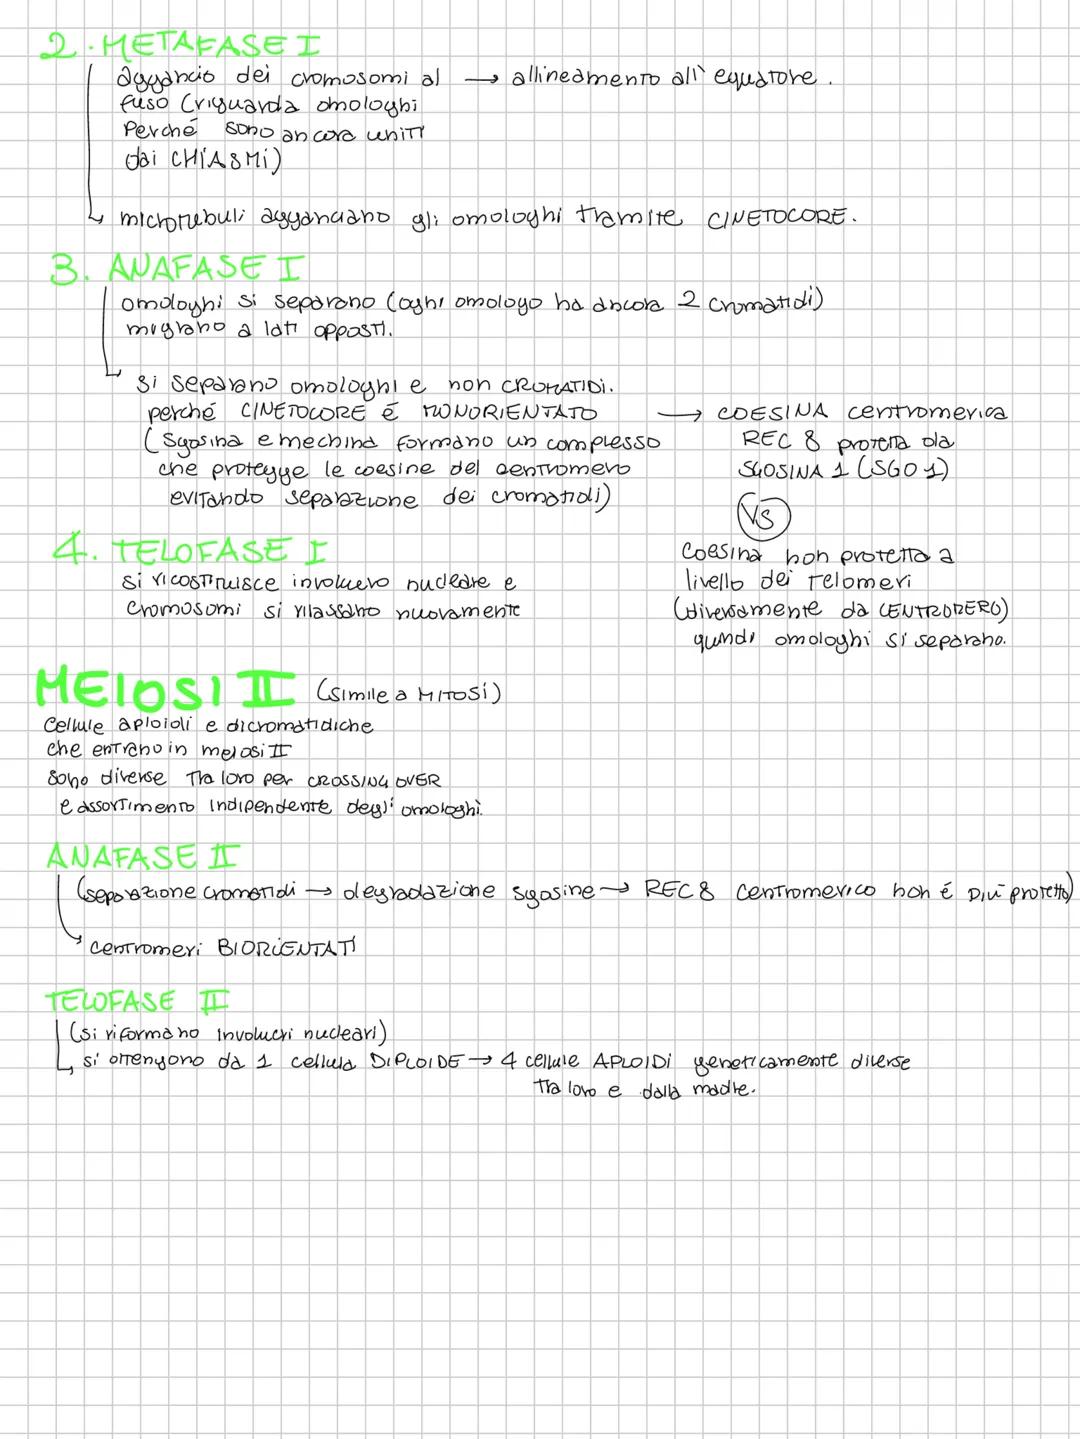 2. METAFASE I
aggancio dei cromosomi al → allineamento all'equatore.
fuso (riguarda omologhi
perché sono ancora uniti
dai CHIASMI)
microtubuli agganciano gli omologhi tramite CINETOCORE.
3. ANAFASE I
omologhi si separano (ogni omologo ha ancora 2 cromatidi)
migrano a lati opposti.
si separano omologhi e non CROMATIDI.
perché CINETOCORE é MONORIENTATO → COESINA centromerica
(Sgosina e mechina formano un complesso REC 8 protetta da
che protegge le coesine del centromero SGOSINA 1 (SGO 1)
evitando separazione dei cromatidi)
VS
4. TELOFASE I
Coesina non protetta a
si ricostituisce involucro nucleare e livello dei telomeri
cromosomi si rilassano nuovamente (diversamente da CENTROMERO)
quindi omologhi si separano.
MEIOSI II (simile a MITOSI)
Cellule aploidi e dicromatidiche
che entrano in meiosi II
sono diverse tra loro per CROSSING OVER
e assortimento indipendente degli omologhi.
ANAFASE II
(separazione cromatidi → degradazione sgosine → REC8 centromerico non é più protetto)
centromeri BIORIENTATI
TELOFASE II
(si riformano involucri nucleari)
si ottengono da 1 cellula DIPLOIDE → 4 cellule APLOIDI geneticamente diverse
tra loro e dalla madre.